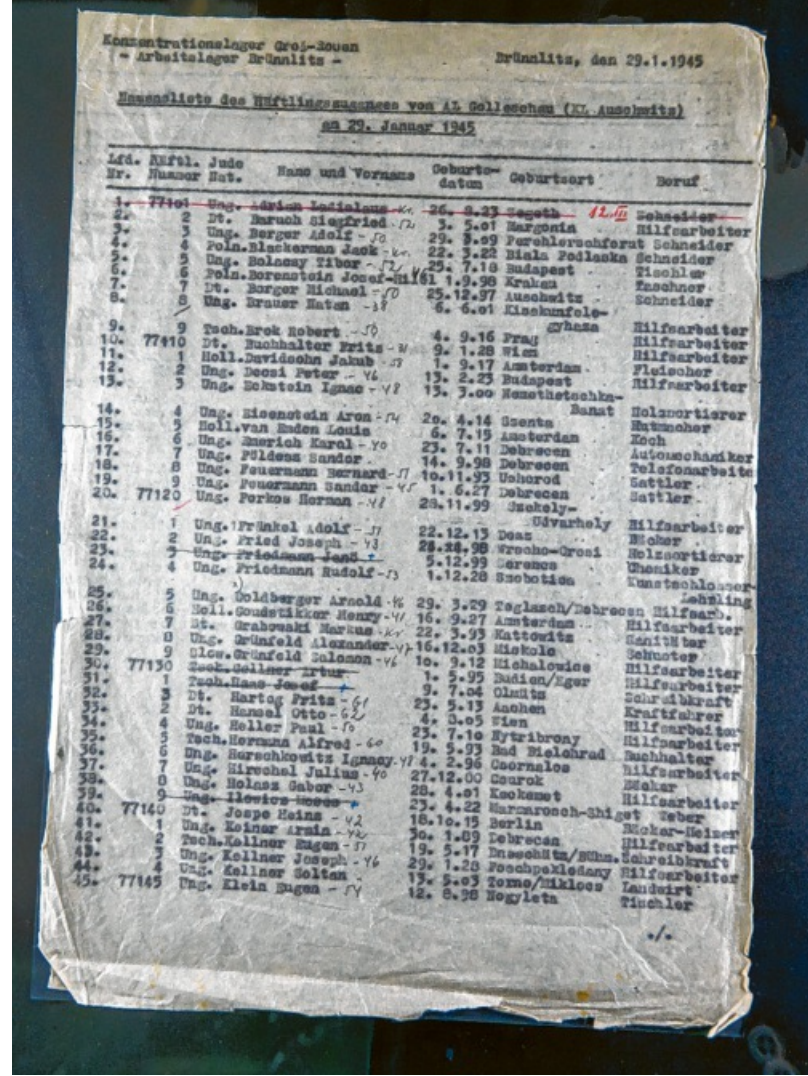 Konzentrationslager Groß-Rosen
- Arbeitslager Brünnlitz -    Brünnlitz, den 29.1.1945
Namensliste des Häftlingszuganges von AL Golleschau (KL Auschwitz)
am 29. Januar 1945
Lfd. Häftl. Jude Name und Vorname Geburts- Geburtsort Beruf
Nr. Nummer Nat. datum
1. 77101 Ung. Adrian Ladislaus Kr. 26. 8.23 Szegeth 12.III Schneider
2. 2 Dt. Baruch Siegfried -52 3. 5.01 Margonin Hilfsarbeiter
3. 3 Ung. Berger Adolf -50 29. 3.09 Perchlerschforut Schneider
4. 4 Poln. Blackerman Jack -Kr. 22. 3.22 Biala Podlaska Schneider
5. 5 Ung. Bolnsay Tibor -52 25. 7.18 Budapest Tischler
6. 6 Poln. Borenstein Josef-Hillel 1.9.98 Krakau Taschner
7. 7 Dt. Borger Michael -50 25.12.97 Auschwitz Schneider
8. 8 Ung. Brauer Natan -38 6. 6.01 Kiskunfele-
gyhaza Hilfsarbeiter
9. 9 Tsch. Brok Robert -50 4. 9.16 Prag Hilfsarbeiter
10. 77110 Dt. Buchhalter Fritz 9. 1.28 Wien Hilfsarbeiter
11. 1 Holl. Davidsohn Jakub 1. 9.17 Amsterdam Fleischer
12. 2 Ung. Decsi Peter -46 13. 2.23 Budapest Hilfsarbeiter
13. 3 Ung. Eckstein Ignac -48 13. 3.00 Nemethetschka-
Banat Holzsortierer
14. 4 Ung. Eisenstein Aron -54 20. 4.14 Szenta Hutmacher
15. 5 Holl. van Emden Louis 6. 7.15 Amsterdam Koch
16. 6 Ung. Emerich Karol -40 23. 7.11 Debrecen Automechaniker
17. 7 Ung. Földess Sandor 14. 9.98 Debrecen Telefonarbeite
18. 8 Ung. Feuermann Bernard -51 10.11.93 Uchorod Sattler
19. 9 Ung. Feuermann Sandor -45 1. 6.27 Debrecen Sattler
20. 77120 Ung. Ferkos Herman -48 28.11.99 Szekely-
Udvarhely Hilfsarbeiter
21. 1 Ung. Fränkel Adolf -51 22.12.13 Bäcker
22. 2 Ung. Fried Joseph -43 Wrscho-Orosi Holzsortierer
23. 3 Ung. Friedmann Jenö 5.12.99 Chemiker
24. 4 Ung. Friedmann Rudolf -53 1.12.28 Kunstschlosser-
Lehrling
25. 5 Ung. Goldberger Arnold -46 29. 3.29 Teglasch/Debrecen Hilfsarb.
26. 6 Holl. Goudstikker Henry -41 16. 9.27 Amsterdam Hilfsarbeiter
27. 7 Dt. Grabowski Markus -Kr 22. 3.93 Kattowitz Sanitäter
28. 8 Ung. Grünfeld Alexander -47 16.12.03 Miskolc Schuster
29. 9 Slow. Grünfeld Salomon -46 10. 9.12 Michalowice Hilfsarbeiter
30. 77130 Gellner Artur 1. 5.95 Hilfsarbeiter
31. 1 Tsch. Haas Josef 9. 7.04 Olmütz Schreibkraft
32. 3 Dt. Hartog Fritz -61 23. 5.13 Aachen Kraftfahrer
33. 2 Dt. Hansel Otto -62 4. 8.05 Wien Hilfsarbeiter
34. 4 Ung. Heller Paul -50 23. 7.10 Nytribrony Hilfsarbeiter
35. 5 Tsch. Hermann Alfred -60 19. 5.93 Bad Bielohrad Buchhalter
36. 6 Ung. Herschkowitz Ignacy -48 4. 2.96 Csornalos Hilfsarbeiter
37. 7 Ung. Hirschel Julius -40 27.12.00 Csurok Bäcker
38. 8 Ung. Holasz Gabor -43 28. 4.01 Kecskemet Hilfsarbeiter
39. 9 Ung. Ilowics Moses 23. 4.22 Marmarosch-Shiget Weber
40. 77140 Dt. Jospe Heinz -42 18.10.15 Berlin Bäcker-Heizer
41. 1 Ung. Keiner Armin -42 30. 1.89 Debrecen Hilfsarbeiter
42. 2 Tsch. Kellner Eugen -51 19. 5.17 Schreibkraft
43. 3 Ung. Kellner Joseph -46 29. 1.28 Hilfsarbeiter
44. 4 Ung. Kellner Soltan 13. 5.03 Torno/Mikloes Landwirt
45. 77145 Ung. Klein Eugen -54 12. 8.98 Nogyleta Tischler
./.